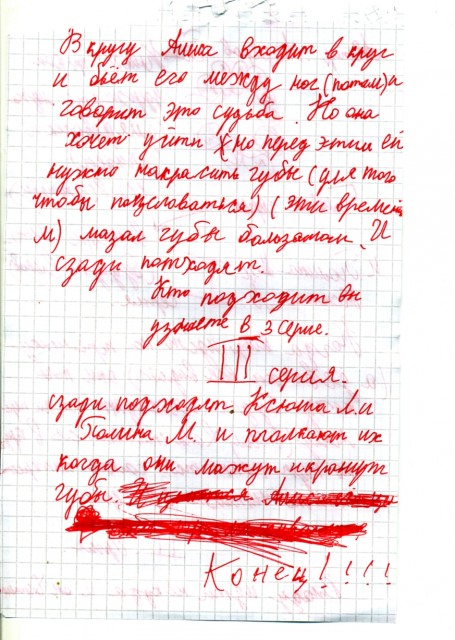 В кругу Алика входит в круг
и бьёт его между ног (потом) и
говорит это судьба. Но она
хочет уйти но перед этим ей
нужно накрасить губы (для того
чтобы поцеловаться) (эти время
М) мазал губы бальзамом. И
сзади потходят.
Кто подходит вы
узнаете в 3 серие.
III серия.
сзади подходят. Ксюша Л. и
Полина М. и толкают их
когда они мажут и кранут
губы.
Конец!!!!